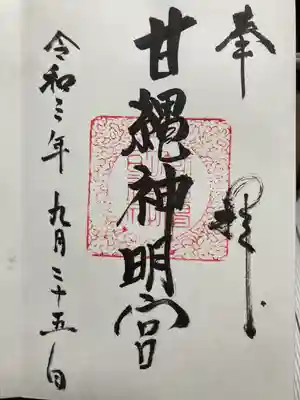 奉拝
甘縄神明宮
令和三年九月二十五日